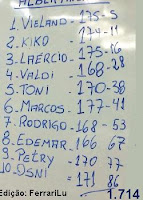 1. VIELAND - 175-5
2. KIKO - 174-11
3. LAÉRCIO - 175-16
4. VALDI - 168-28
5. TONI - 170-38
6. MARCOS - 177-41
7. RODRIGO - 168-53
8. EDEMAR 166 67
9. PETRY - 170 77
10. OSNI = 171 86
1.714
Edição: FerrariLu